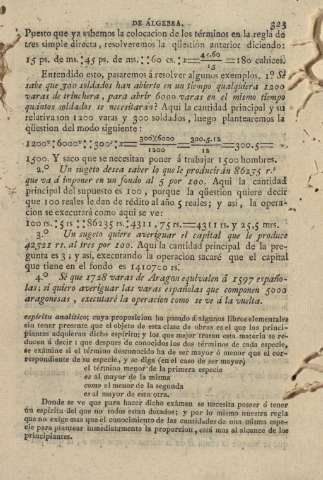 DE ÁLGEBRA. 323
Puesto que ya sabemos la colocacion de los términos en la regla de
tres simple directa, resolveremos la qüestion anterior diciendo:
15 ps. de ms. : 45 ps. de ms. :: 60 cs. : x = 45.60/15 = 180 cahices.
Entendido esto, pasaremos á resolver algunos exemplos. 1.º Se
sabe que 300 soldados han abierto en un tiempo qualquiera 1200
varas de trinchera, para abrir 6000 varas en el mismo tiempo
quántos soldados se necesitarán? Aquí la cantidad principal y su
relativa son 1200 varas y 300 soldados, luego plantearemos la
qüestion del modo siguiente:
1200 : 6000 :: 300 : x = 300×6000/1200 = 300.5.12/12 = 300.5 =
1500. Y saco que se necesitan poner á trabajar 1500 hombres.
2.º Un sugeto desea saber lo que le producirán 86275 rs.
que va á imponer en un fondo al 5 por 100. Aquí la cantidad
principal del supuesto es 100, porque la qüestion quiere decir
que 100 reales le dan de rédito al año 5 reales; y así, la opera-
cion se executará como aquí se ve:
100 rs. : 5 rs :: 86235 rs. : 4311 ,75 rs. = 4311 rs. y 25,5 mrs.
3.º Un sugeto quiere averiguar el capital que le produce
42321 rs. al tres por 100. Aquí la cantidad principal de la pre-
gunta es 3; y así, executando la operacion sacaré que el capital
que tiene en el fondo es 1410700 rs.
4.º Sé que 1728 varas de Aragon equivalen á 1597 españo-
las; si quiero averiguar las varas españolas que componen 5000
aragonesas, executaré la operacion como se ve á la vuelta.
espíritu analítico; cuya proposicion ha pasado á algunos libros elementales
sin tener presente que el objeto de esta clase de obras es el que los princi-
piantes adquieran dicho espíritu; y los que mejor tratan esta materia se re-
ducen á decir: que despues de conocidos los dos términos de cada especie,
se exâmine si el término desconocido ha de ser mayor ó menor que el cor-
respondiente de su especie, y se diga (en el caso de ser mayor)
el término menor de la primera especie
es al mayor de la misma
como el menor de la segunda
es al mayor de esta otra.
Donde se ve que para hacer dicho exâmen se necesita poseer ó tener
un espíritu del que no todos estan dotados; y por lo mismo nuestra regla
que no exige mas que el conocimiento de las cantidades de una misma espe-
cie para plantear inmediatamente la proporcion, está mas al alcance de los
principiantes.